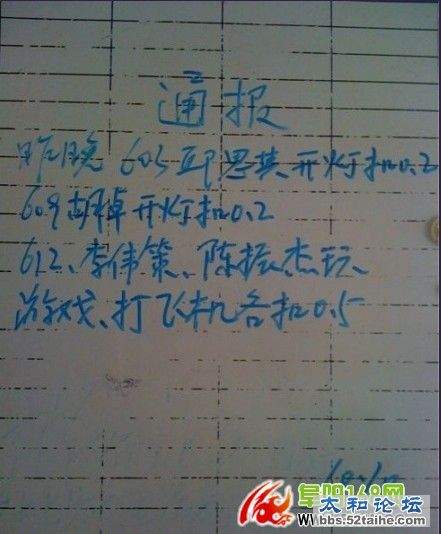 通报
昨晚605邱思其开灯扣0.2
609胡棹开灯扣0.2
612、李伟策、陈振杰玩
游戏、打飞机各扣0.5
阜阳169网
太和论坛
bbs.52taihe.com